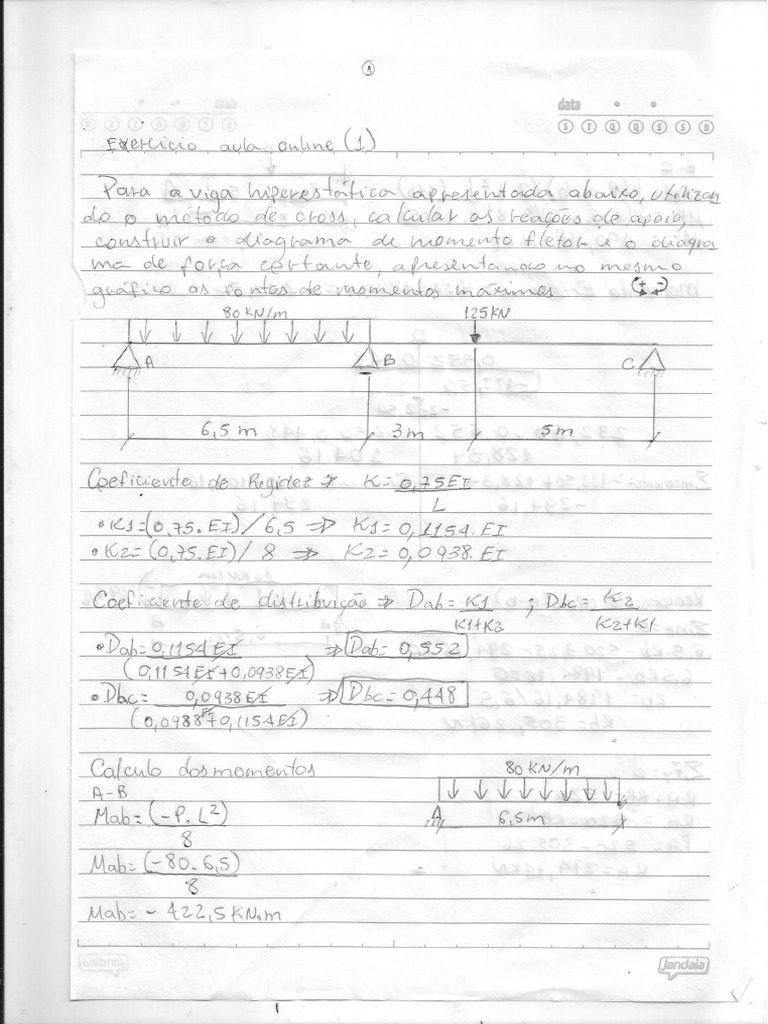 1
data
S T Q Q S S D
Exercício aula online (1)
Para a viga hiperestática apresentada abaixo, utilizan
do o método de cross, calcular as reações de apoio,
construir o diagrama de momento fletor e o diagra
ma de força cortante, apresentando no mesmo
gráfico os pontos de momentos máximos (+ -)
80 KN/m 125 KN
A B C
6,5 m 3 m 5 m
Coeficiente de Rigidez → K = 0,75EI
L
• K1 = (0,75. EI) / 6,5 ⇒ K1 = 0,1154. EI
• K2 = (0,75. EI) / 8 ⇒ K2 = 0,0938. EI
Coeficiente de distribuição ⇒ Dab = K1 ; Dbc = K2
K1+K2 K2+K1
• Dab = 0,1154EI ⇒ Dab = 0,552
(0,1154EI+0,0938EI)
• Dbc = 0,0938EI ⇒ Dbc = 0,448
(0,0988EI+0,1154EI)
Calculo dos momentos 80 KN/m
A-B
Mab = (-P.L²) A 6,5m
8
Mab = (-80.6,5)
8
Mab = - 422,5 KN.m
jandaia
1